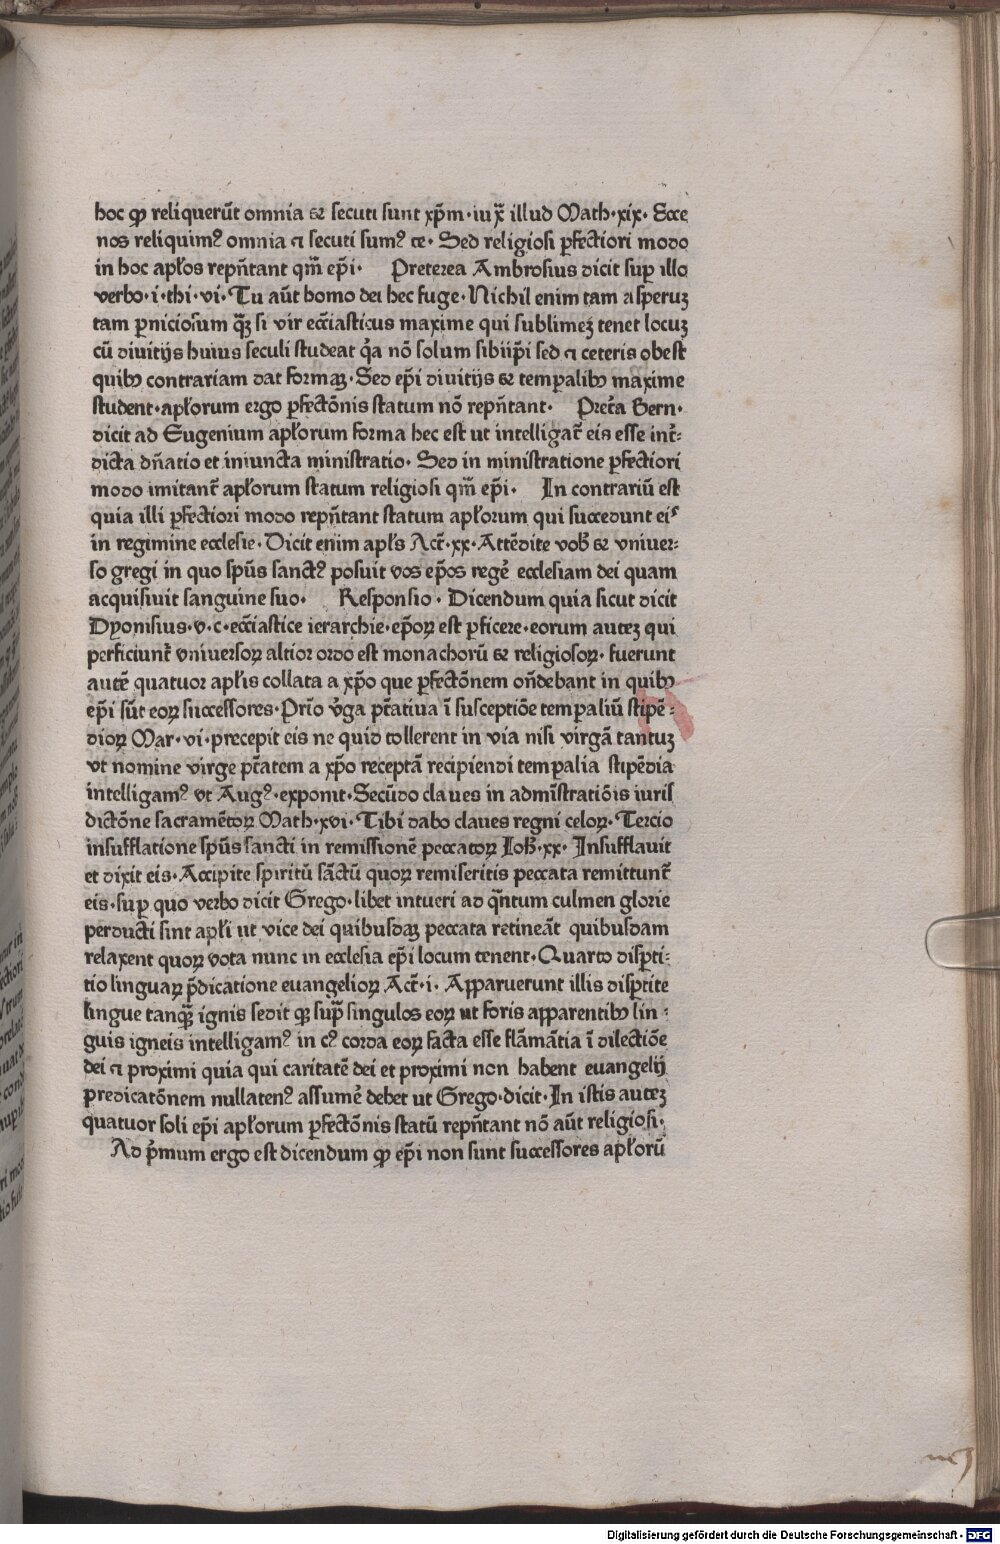 hoc ꝙ reliquerūt omnia ⁊ secuti sunt xp̄m·iux̄ illud Math·xix· Ecce
nos reliquimꝰ omnia ⁊ secuti sumꝰ te· Sed religiosi ꝑfectiori modo
in hoc apłos repn̄tant qm̄ ep̄i· Preterea Ambrosius dicit suꝑ illo
verbo·i·thi·vi·Tu aūt homo dei hec fuge·Nichil enim tam asperuꝫ
tam ꝑniciosum qꝫ̄ si vir ecc̄iasticus maxime qui sublimeꝫ tenet locuꝫ
cū divitijs huius seculi studeat q̄a nō solum sibiip̄i sed ⁊ ceteris obest
quibꝫ contrariam dat formaꝫ·Sed ep̄i divitijs ⁊ temꝑalibꝫ maxime
student·apłorum ergo ꝑfectōnis statum nō repn̄tant· Pret̄a Bern·
dicit ad Eugenium apłorum forma hec est ut intelligat̄ eis esse int̄-
dicta dn̄atio et iniuncta ministratio· Sed in ministratione ꝑfectiori
modo imitant̄ apłorum statum religiosi qm̄ ep̄i· In contrariū est
quia illi ꝑfectiori modo repn̄tant statum apłorum qui succedunt eiˢ
in regimine ecclesie·Dicit enim apłs Act̄·xx·Attēdite vob̄ ⁊ vniver-
so gregi in quo spūs sanctꝰ posuit vos ep̄os regē ecclesiam dei quam
acquisivit sanguine suo· Responsio· Dicendum quia sicut dicit
Dyonisius·v·c·ecc̄iastice ierarchie·ep̄oꝝ est ꝑficere·eorum auteꝫ qui
perficiunt̄ vniversoꝝ altior ordo est monachorū ⁊ religiosoꝝ·fuerunt
autē quatuor apłis collata a xp̄o que ꝑfectōnem on̄debant in quibꝫ
ep̄i sūt eoꝝ successores·Prīo v̄ga pt̄ativa ī susceptiōe temꝑaliū stipē-
dioꝝ Mar·vi·precepit eis ne quid tollerent in via nisi virgā tantuꝫ
vt nomine virge pt̄atem a xp̄o receptā recipiendi temꝑalia stipēdia
intelligamꝰ vt Augꝰ·exponit·Secūdo claves in admīstratiōis iuris
dictōne sacramētoꝝ Math·xvi·Tibi dabo claves regni celoꝝ·Tercio
insufflatione spūs sancti in remissionē peccatoꝝ Ioh̄·xx·Insufflavit
et dixit eis·Accipite spiritū sāctū quoꝝ remiseritis peccata remittunt̄
eis·suꝑ quo verbo dicit Grego·libet intueri ad qn̄tum culmen glorie
perducti sint apłi ut vice dei quibusdaꝫ peccata retineāt quibusdam
relaxent quoꝝ vota nunc in ecclesia ep̄i locum tenent·Quarto disꝑti-
tio linguaꝝ p̄dicatione euangelioꝝ Act̄·i· Apparuerunt illis disꝑtite
lingue tanqꝫ̄ ignis sedit qꝫ sup̄ singulos eoꝝ ut foris apparentibꝫ lin-
guis igneis intelligamꝰ in cꝰ corda eoꝝ facta esse flāmātia ī dilectiōe
dei ⁊ proximi quia qui caritatē dei et proximi non habent euangelij
predicatōnem nullatenꝰ assumē debet ut Grego·dicit·In istis auteꝫ
quatuor soli ep̄i apłorum ꝑfectōnis statū repn̄tant nō aūt religiosi·
Ad p̄mum ergo est dicendum ꝙ ep̄i non sunt successores apłorū
Digitalisierung gefördert durch die Deutsche Forschungsgemeinschaft - DFG